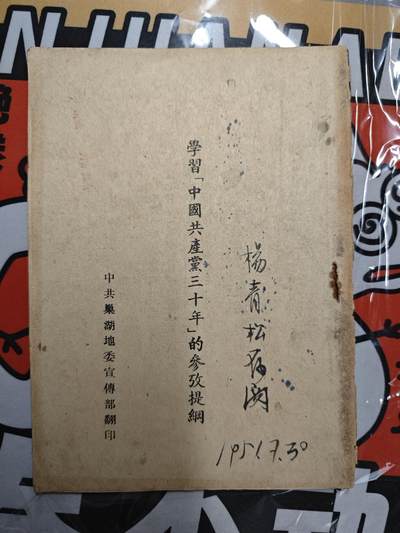 楊青松
1951.7.30
學習「中國共產黨三十年」的參攷提綱
中共巢湖地委宣傳部翻印